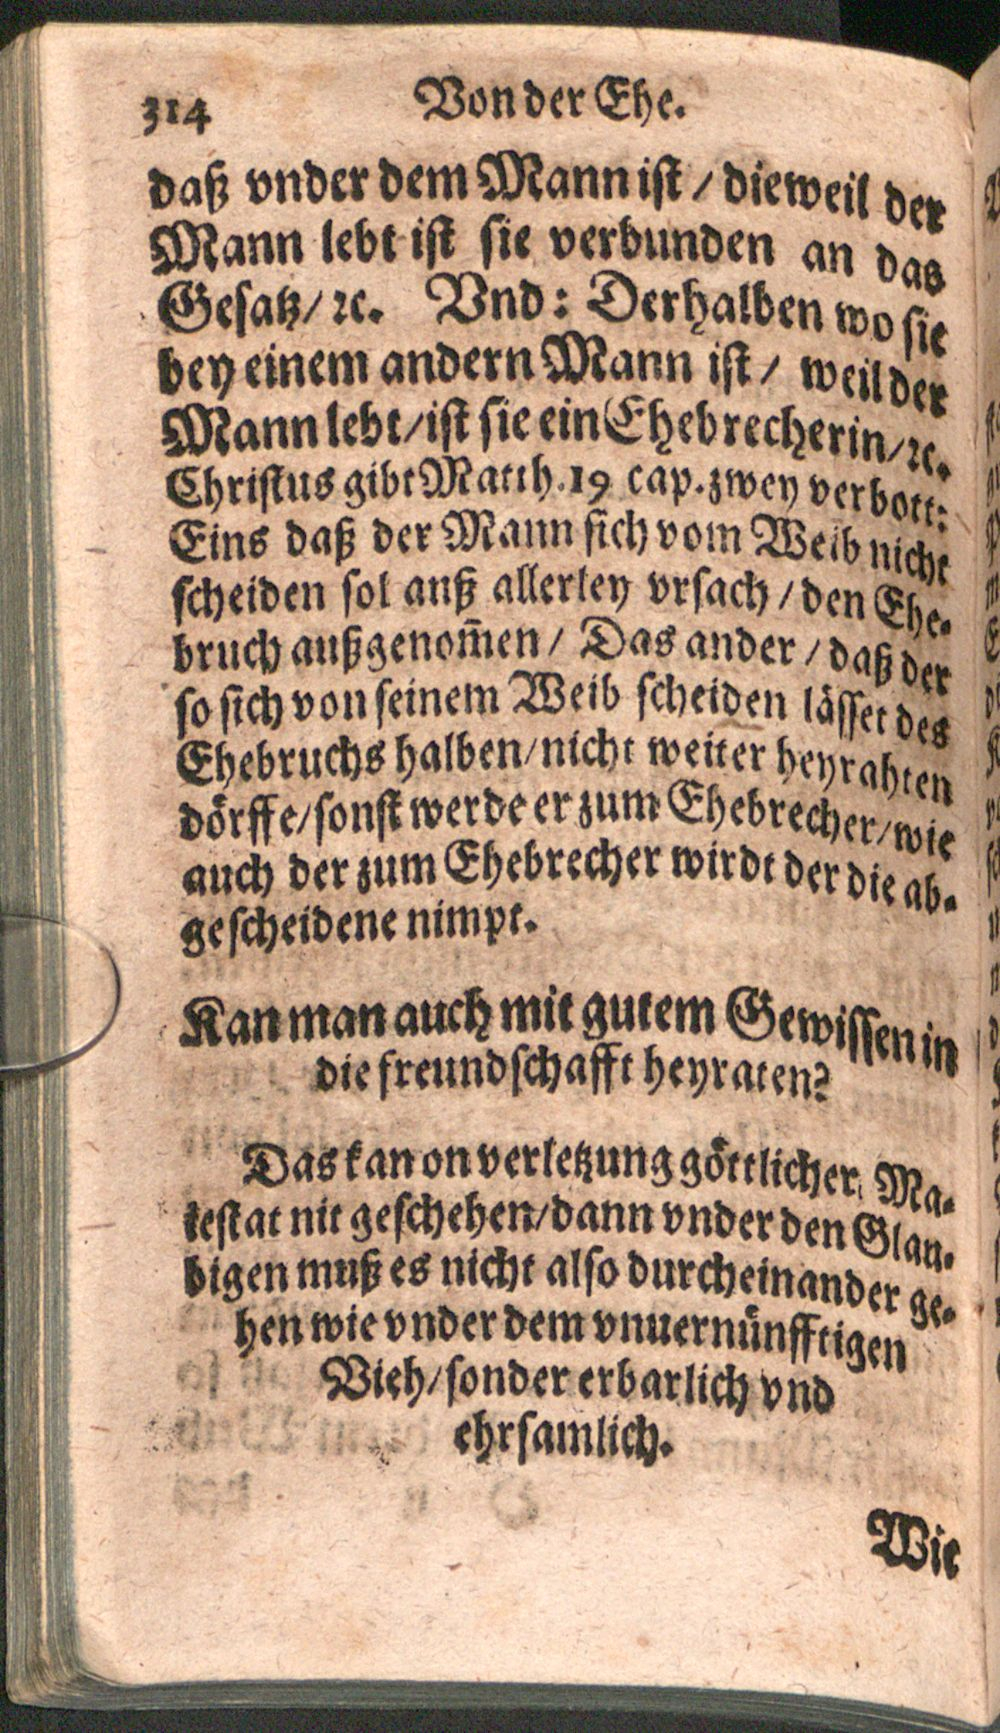 314 Von der Ehe.
daß vnder dem Mann ist / dieweil der
Mann lebt ist sie verbunden an das
Gesatz / ꝛc. Vnd: Derhalben wo sie
bey einem andern Mann ist / weil der
Mann lebt / ist sie ein Ehebrecherin / ꝛc.
Christus gibt Matth. 19 cap. zwey verbott:
Eins daß der Mann sich vom Weib nicht
scheiden sol auß allerley vrsach / den Ehe-
bruch außgenom̃en / Das ander / daß der
so sich von seinem Weib scheiden lässet des
Ehebruchs halben / nicht weiter heyrahten
dörffe / sonst werde er zum Ehebrecher / wie
auch der zum Ehebrecher wirdt der die ab-
gescheidene nimpt.
Kan man auch mit gutem Gewissen in
die freundschafft heyraten?
Das kan on verletzung göttlicher Ma-
iestat nit geschehen / dann vnder den Glau-
bigen muß es nicht also durcheinander ge-
hen wie vnder dem vnuernünfftigen
Vieh / sonder erbarlich vnd
ehrsamlich.
Wie